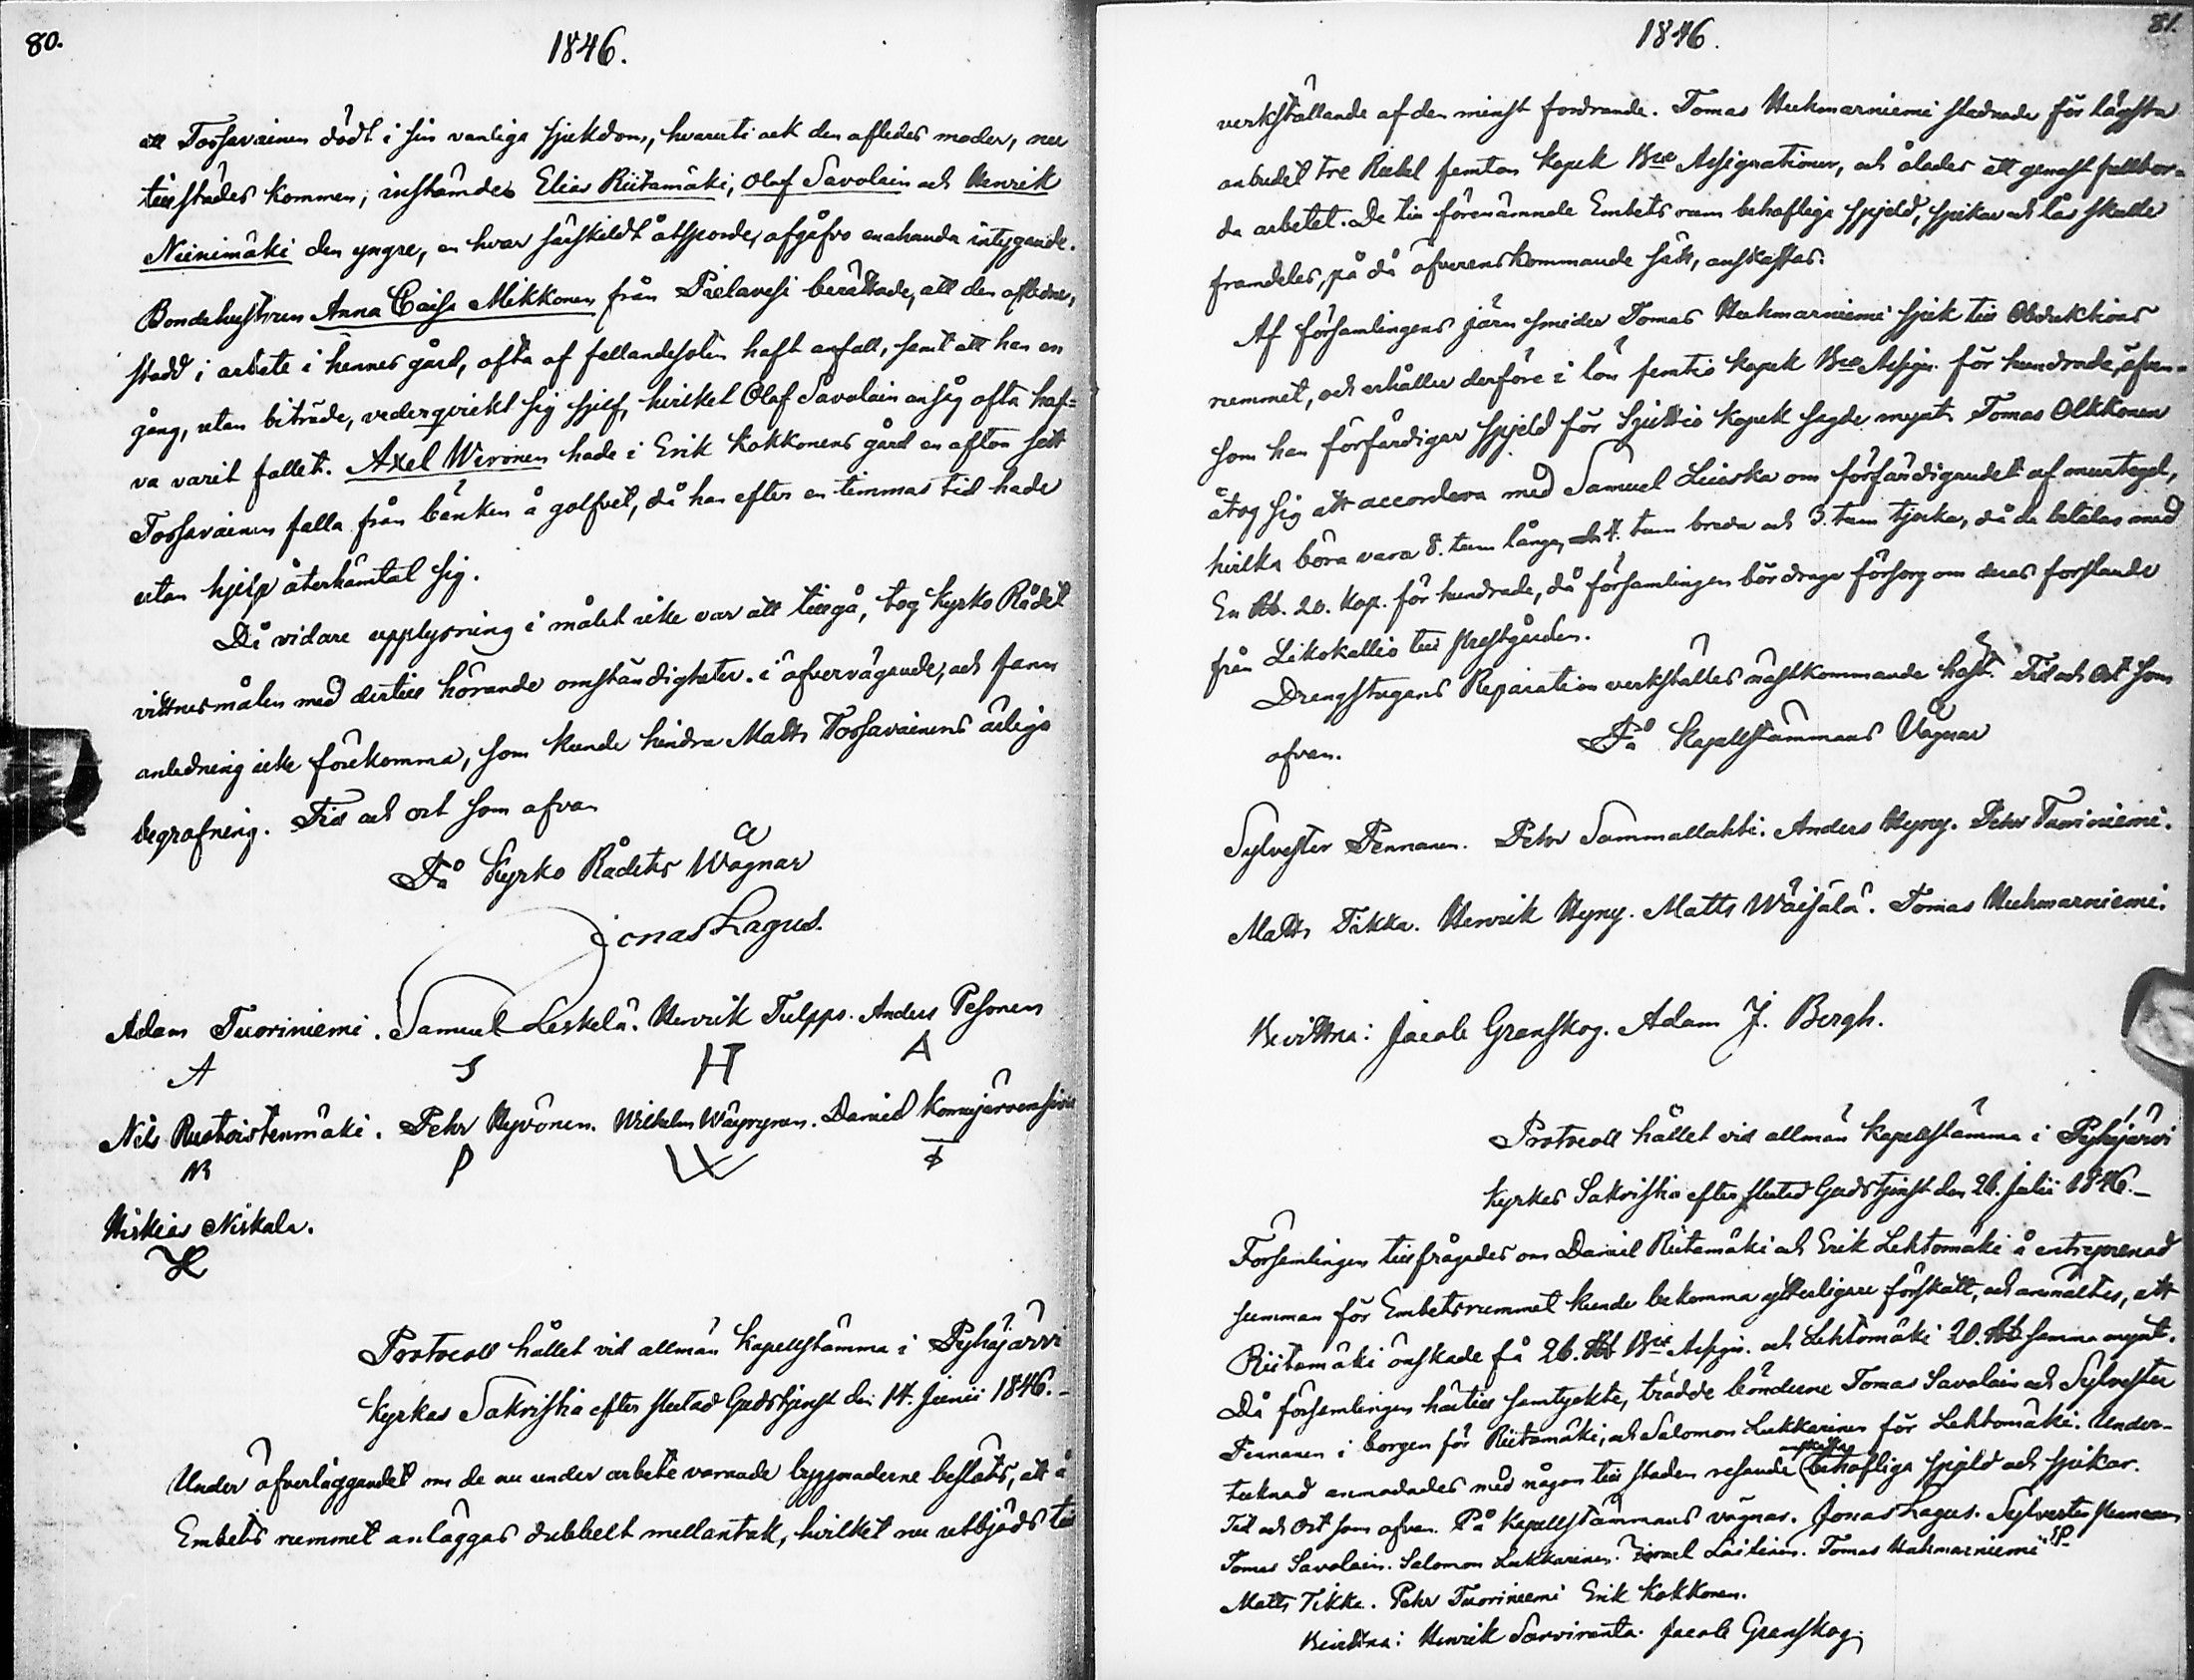 80.
1846.
att Tossavainen dödt i sin vanliga sjukdom, hvaruti ock den aflednes moder, nu
tillstädes kommen, instämdes Elias Riitamäki, Olof Savolain och Henrik
Nienimäki den yngre, en hvar särskildt åtsporde, afgåfvo enahanda intygande.
Bondehustrun Anna Caisa Mikkonen från Pielavesi berättade, att den aflidne,
stadd i arbete i hennes gård, ofta af fallandesoten haft anfall, samt att han en
gång, utan biträde, vederqvickt sig sjelf, hvilket Olof Savolain ansåg ofta haf-
va varit fallet. Axel Wironen hade i Erik Kokkonens gård en afton sett
Tossavainen falla från bänken å golfvet, då han efter en timmas tid hade
utan hjelp återhämtat sig.
Då vidare upplysning i målet icke var att tillgå, tog Kyrko Rådet
vittnesmålen med dertill hörande omständigheter i öfvervägande, och fann
anledning icke förekomma, som kunde hindra Matts Tossavainens ärliga
begrafning. Tid och ort som ofvan
På Kyrko Rådets Wägnar
Jonas Lagus.
Adam Tuoriniemi. Samuel Leskelä. Henrik Tulppo. Anders Pesonen
A S H A
Nils Ruotoistenmäki. Pehr Hyvönen. Wilhelm Wäyrynen. Daniel
NR P W
Hiskias Niskala.
H
Protocoll hållet vid allmän Kapellstämma i Pyhäjärvi
Kyrkas Sakristia efter slutad Gudstjenst den 14. Junii 1846.-
Under öfverläggandet om de nu under arbete varande byggnaderne beslöts, att å
Embets rummet anläggas dubbelt mellantak, hvilket nu utbjöds till
81.
1846.
verkställande af den minst fordrande. Tomas Huhmarniemi stadnade för lägsta
anbudet tre Rubel femton Kopek Bco Assignationer, och ålades att genast fullbor-
da arbetet. De till förenämnde Embets rum behöfliga spjeld, spikar och lås skulle
framdeles, på då öfverenskommande sätt, anskaffas.
Af församlingens järn smider Tomas Huhmarniemi spik till Obduktions
rummet, och erhåller derföre i lön femtio kopek Bco Assign. för hundrade, äfven-
som han förfärdigar spjeld för Sjuttio kopek sagde mynt. Tomas Olkkonen
åtog sig att accordera med Samuel Liiska om förfärdigandet af murtegel,
hvilka böra vara 8. tum långa, 4. tum breda och 3. tum tjocka, då de betalas med
En Rb. 20. Kop. för hundrade, då församlingen bör draga försorg om deras forslande
från Likokallio till prestgården.
Drengstugans Reparation verkställes nästkommande höst. Tid och Ort som
ofvan.
På Kapellstämmans Vägnar
Sylvester Pennanen. Pehr Sammallahti. Anders Hyny. Pehr Tuoriniemi.
Matts Tikka. Henrik Hyny. Matts Wäisälä. Tomas Huhmarniemi.
Bevittna: Jacob Granskog. Adam J. Bergh.
Protocoll hållet vid allmän Kapellstämma i Pyhäjärvi
Kyrkas Sakristia efter slutad Gudstjenst den 26. Julii 1846._
Församlingen tillfrågades om Daniel Riitamäki och Erik Lehtomäki å entreprenad
summan för Embetsrummet kunde bekomma ytterligare förskott, och anmältes, att
Riitamäki önskade få 26. Rb Bco Assign. och Lehtomäki 20. Rb samma mynt.
Då församlingen härtill samtyckte, trädde bönderne Tomas Savolain och Sylvester
Pennanen i borgen för Riitamäki, och Salomon Lukkarinen för Lehtomäki. Under-
tecknad anmodades med någon till staden resande anskaffa behöfliga spjeld och spikar.
Tid och Ort som ofvan. På Kapellstämmans vägnar. Jonas Lagus. Sylvester Pennanen
Tomas Savolain. Salomon Lukkarinen. Israel Laitinen. Tomas Huhmarniemi
Matts Tikka. Pehr Tuoriniemi Erik Kokkonen.
Bevittna: Henrik Sorviranta. Jacob Granskog.